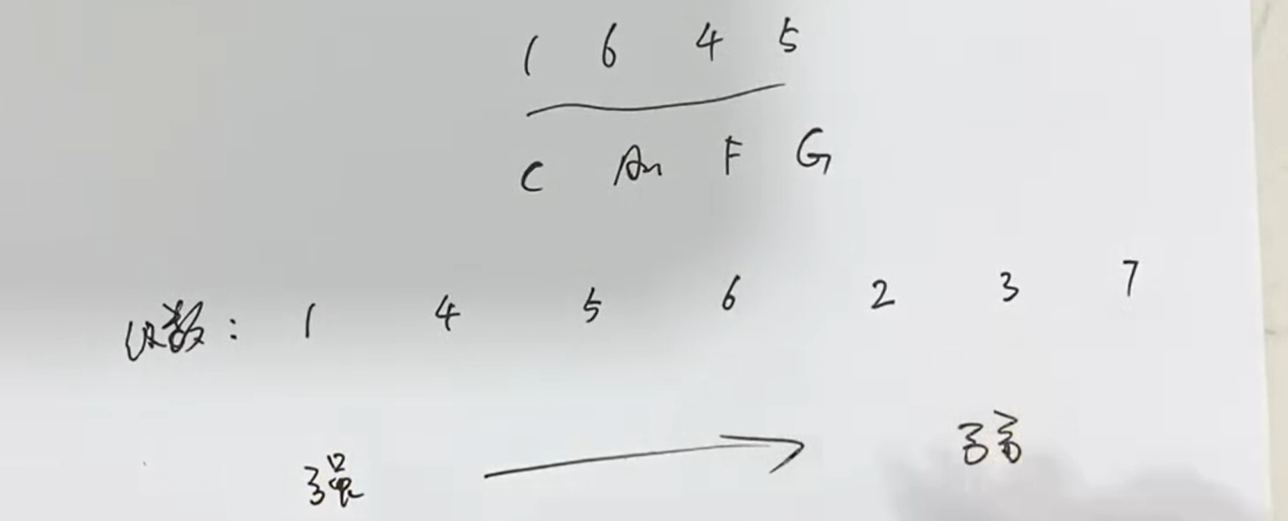 1 6 4 5
C Am F G
级数: 1 4 5 6 2 3 7
强 → 弱